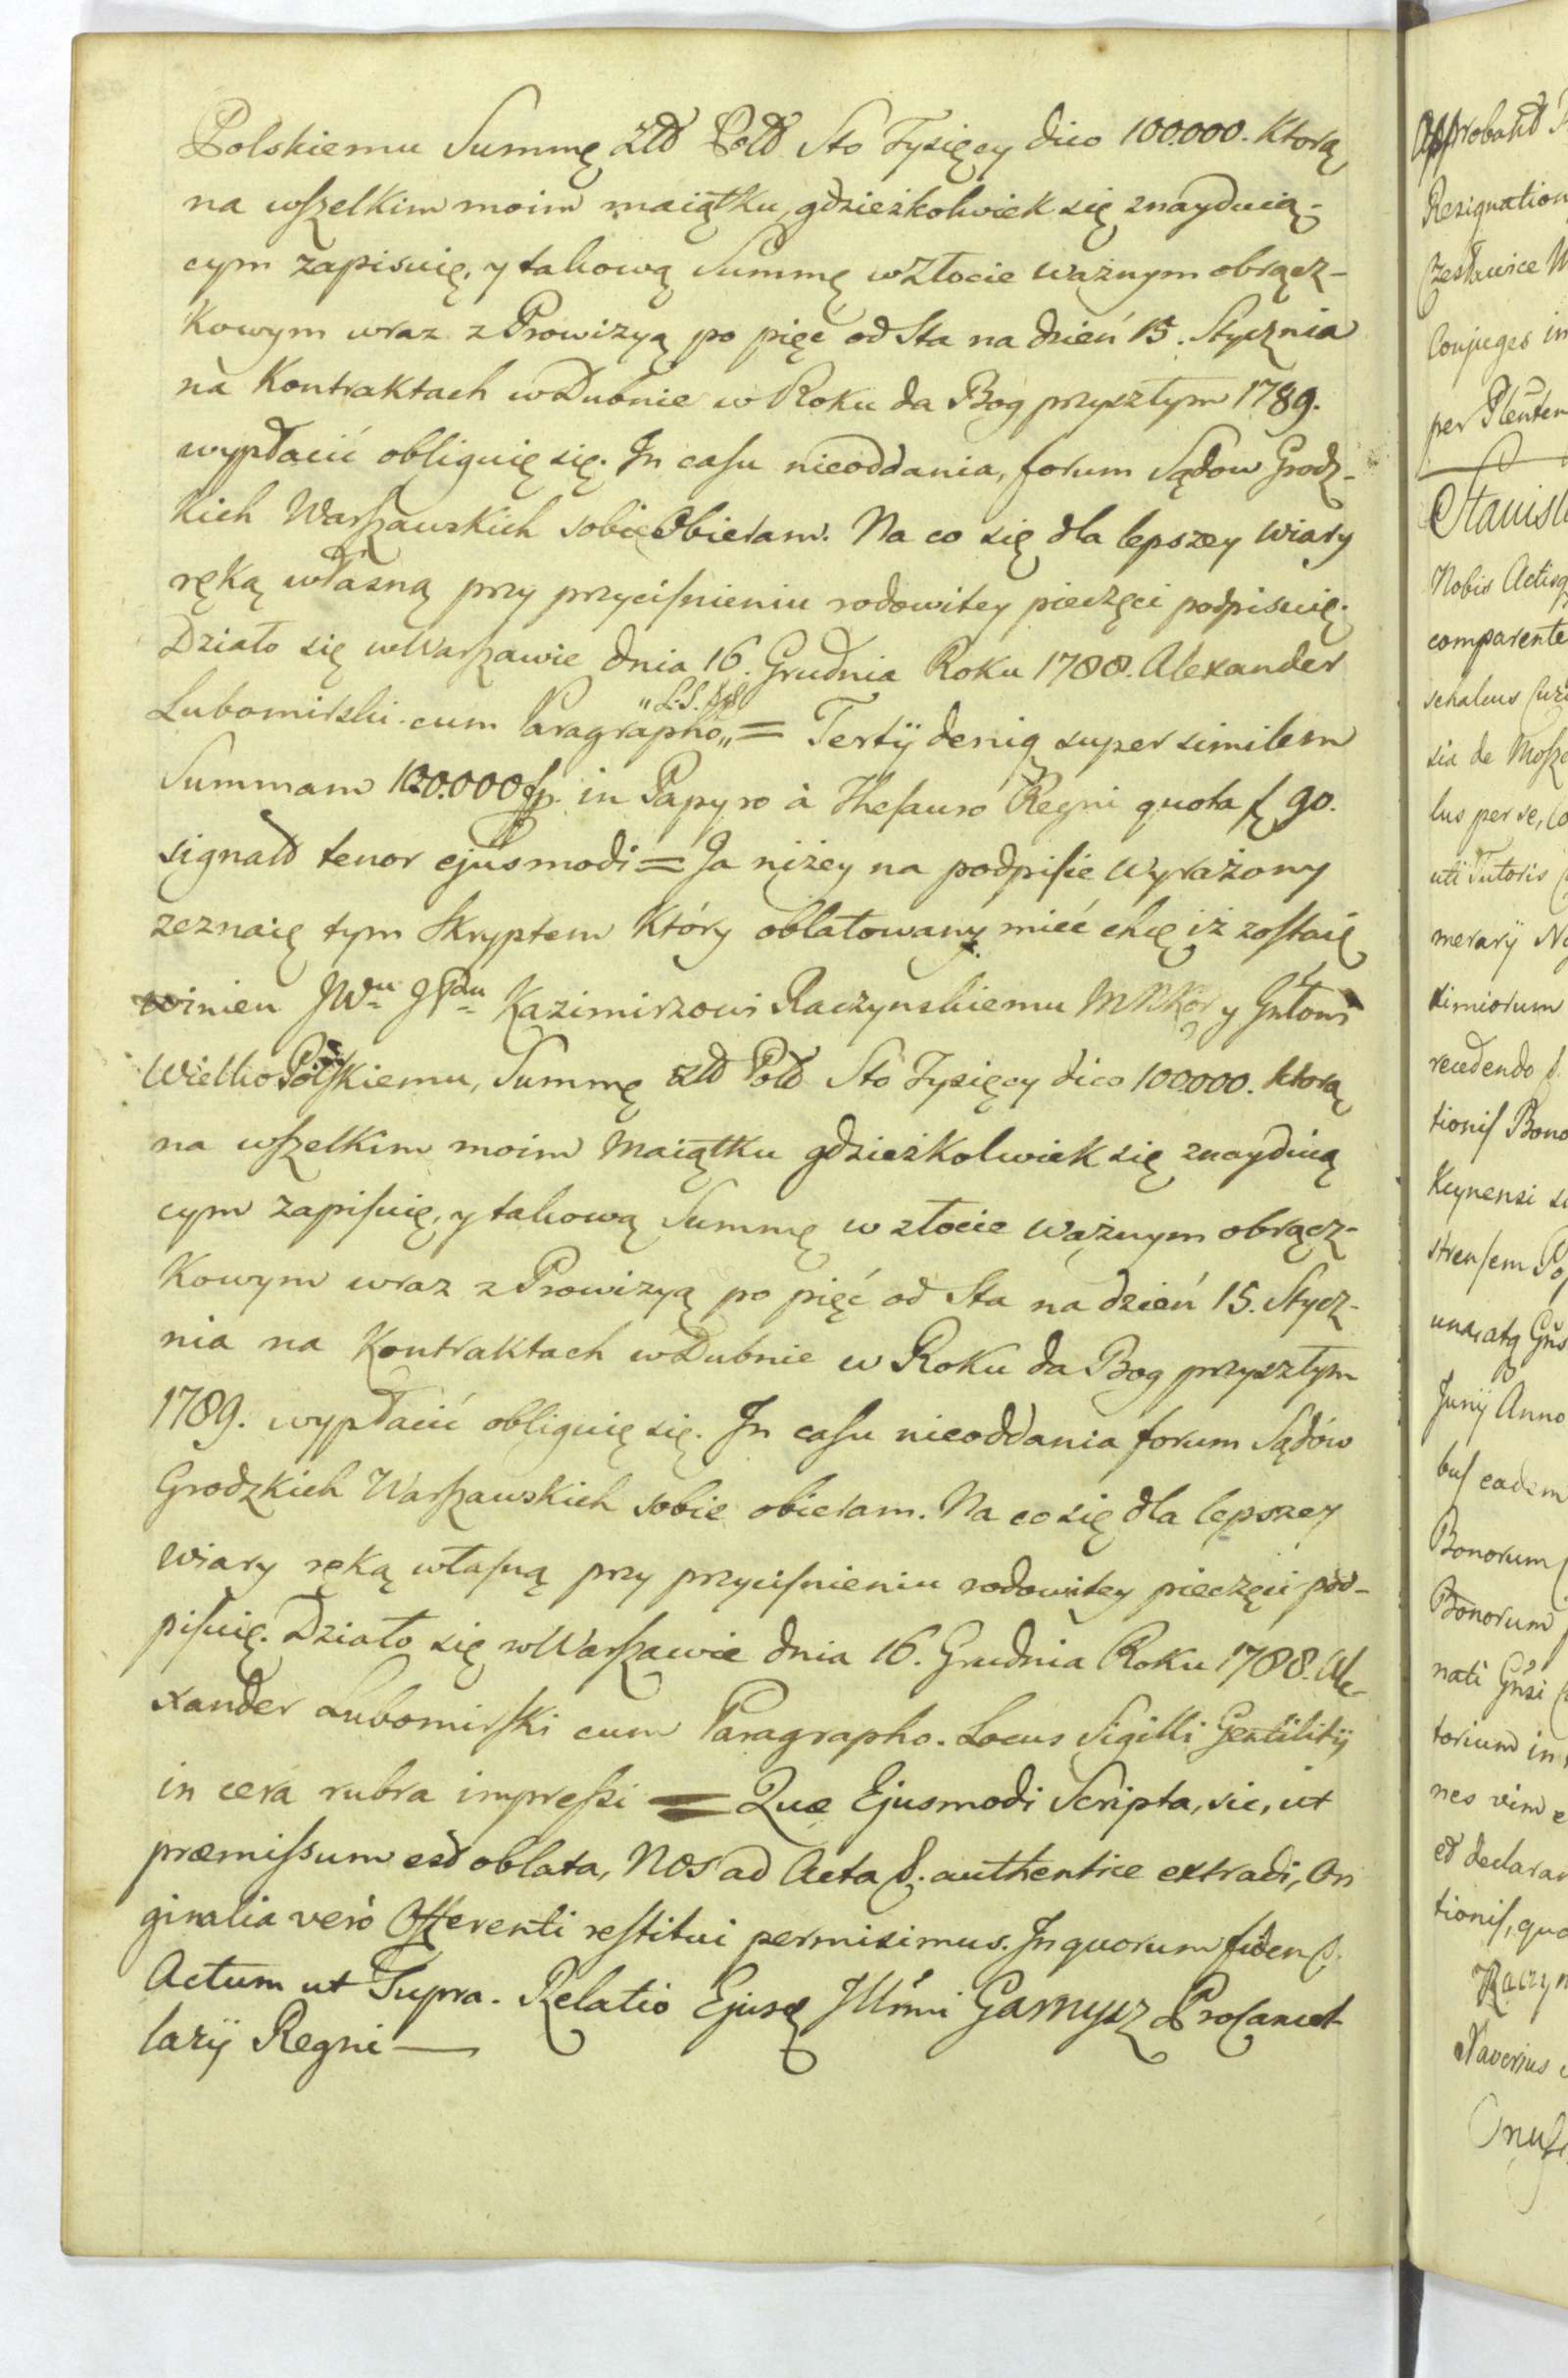 Polskiemu Summę Złd Pold Sto Tysięcy dico 100.000. Ktorą
na wszelkim moim maiątku, gdzieżkolwiek się znayduią-
cym zapisuię, y takową Summę w Złocie ważnym obrącz-
kowym wraz z Prowizyą po pięć od Sta na dzień 15. Stycznia
na Kontraktach w Dubnie w Roku da Bog przyszłym 1789.
wypłacić obliguię się. In casu nieoddania, forum Sądow Grodz-
kich Warszawskich sobie Obieram. Na co się dla lepszey wiary
ręką własną przy przyciśnieniu rodowitey pieczęci podpisuię.
Działo się w Warszawie dnia 16. Grudnia Roku 1788. Alexander
Lubomirski cum Paragrapho „L.S.„ = Tertÿ deniq super similem
Summam 100.000 fp. in Papyro à Thesauro Regni quota f 90.
signatd tenor ejusmodi = Ja niżey na podpisie wyrażony
zeznaię tym Skryptem Który oblatowany mieć chcę iż zostaię
winien JWu JPdu Kazimirzowi Raczynskiemu MNKor y Gñłowi
WielkoPolskiemu, Summę Złd Pold Sto Tysięcy dico 100.000. ktorą
na wszelkim moim Maiątku gdzieżkolwiek się znayduią
cym zapisuię, y takową Summę w złocie ważnym obrącz-
kowym wraz z Prowizyą po pięć od Sta na dzień 15. Stycz-
nia na Kontraktach w Dubnie w Roku da Bog przyszłym
1789. wypłacić obliguię się. In casu nieoddania forum Sądów
Grodzkich Warszawskich sobie obieram. Na co się dla lepszey
wiary ręką własną przy przyciśnieniu rodowitey pieczęci pod-
pisuię. Działo się w Warszawie dnia 16. Grudnia Roku 1788. Ale-
xander Lubomirski cum Paragrapho. Locus Sigilli Gentilitÿ
in cera rubra impressi = Quæ Ejusmodi Scripta, sic, ut
præmissum est oblata, Nos ad Acta &. authentice extradi, Ori
ginalia verò Offerenti restitui permisimus. In quorum fidem &.
Actum ut Supra. Relatio Ejusq Illmi Garnysz ProCancel
larÿ Regni —
Approbatid
Resignation
Czesławice W
Conjuges in
per Plenten
Stanisl
Nobis Actisq
comparente
schalcus Cur
sia de Mosz
lus per se, Co
uti Tutoris
merarÿ No
simiorum
recedendo &.
tionis Bono
Keynensi s
strensem Po
una, atq Gñs
Junÿ Anno
bus eadem
Bonorum
Bonorum
nati Gñsi
torium in
nes vim e
et declarar
tionis, quo
Raczyn
Xaverius
Onuf